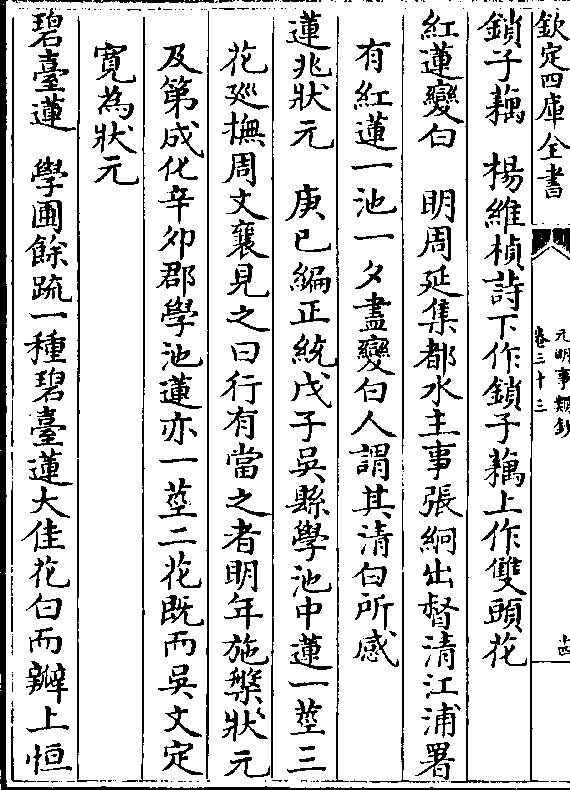 欽定四庫全書
元明事類鈔
卷三十三
鎖子藕　楊維楨詩下作鎖子藕上作雙頭花
紅蓮變白　明周延集都水主事張絅出督清江浦署
有紅蓮一池一夕盡變白人謂其清白所感
蓮兆狀元　庚巳編正統戊子吳縣學池中蓮一莖三
花廵撫周文襄見之曰行有當之者明年施槃狀元
及第成化辛卯郡學池蓮亦一莖二花既而吳文定
寛為狀元
碧臺蓮　學圃餘䟽一種碧臺蓮大佳花白而瓣上恒